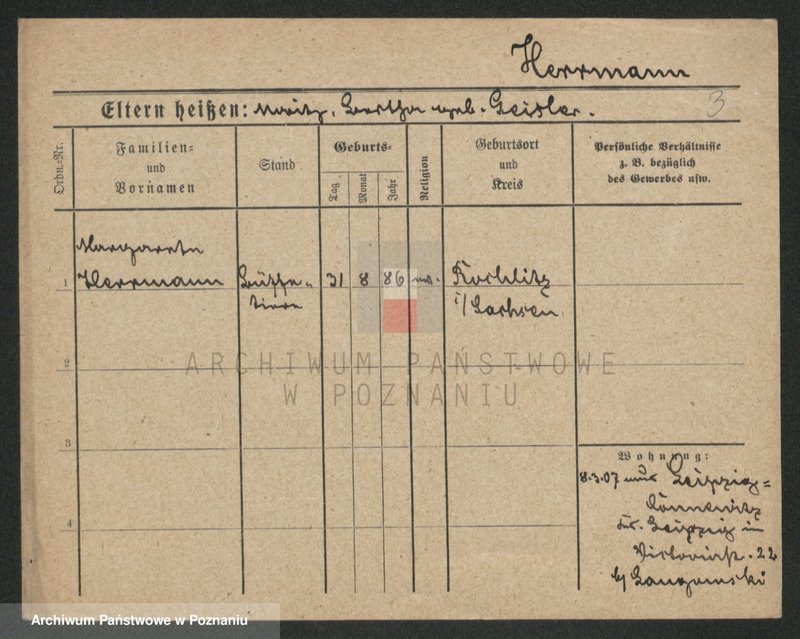 Herrmann
3
Eltern heißen: Moritz, Bertha geb. Geisler.
Ordn.-Nr.
Familien-
und
Vornamen
Stand
Geburts-
Tag
Monat
Jahr
Religion
Geburtsort
und
Kreis
Persönliche Verhältnisse
z. B. bezüglich
des Gewerbes usw.
1
Margarete
Herrmann
Büffe-
tiere
31
8
86
ev.
Rochlitz
i/ Sachsen
2
3
4
Wohnung:
8.3.07 aus Leipzig-
Connewitz
Leipzig in
Victoriastr. 22
b/
ARCHIWUM PAŃSTWOWE
W POZNANIU
Archiwum Państwowe w Poznaniu